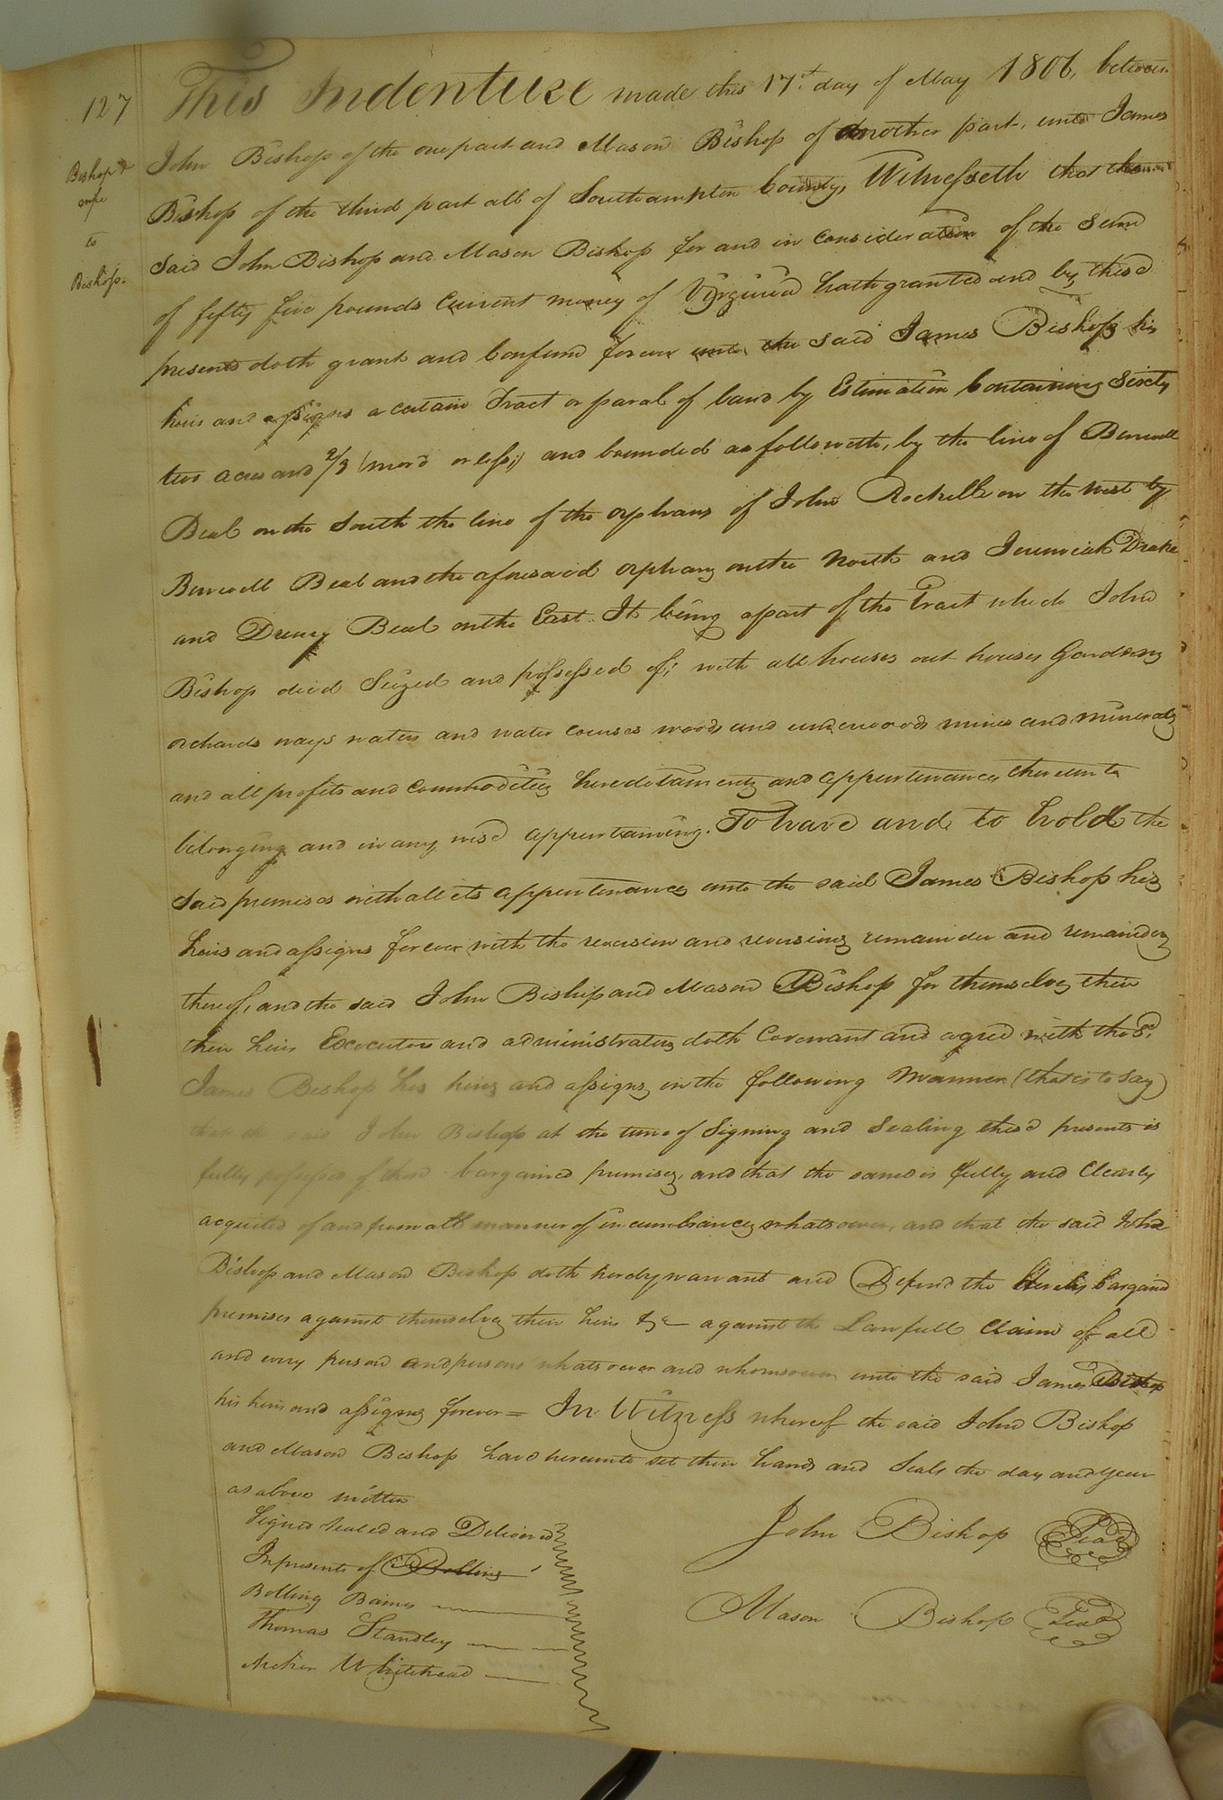 127
Bishop &
to
Bishop.
This Indenture made this 17th day of May 1806, between
John Bishop of the one part and Mason Bishop of another part, unto James
Bishop of the third part all of Southampton County, Witnesseth that
said John Bishop and Mason Bishop for and in consideration of the sum
of fifty five pounds Current money of Virginia hath granted and by these
presents doth grant and Confirm forever unto the said James Bishop his
heirs and assigns a certain Tract or parcel of land by Estimation Containing Sixty
two acres and 2/3 (more or less;) and bounded as followeth, by the line of Burwell
Beal on the South the line of the orphans of John Rochelle on the west by
Burwell Beal and the aforesaid orphans on the North and Jeremiah Drake
and Drewry Beal on the East. It being a part of the Tract which John
Bishop died Seized and possessed of; with all houses out houses Gardens
orchards ways waters and water courses woods and underwoods mines and minerals
and all profits and commodities hereditaments and appurtenances thereunto
belonging and in any wise appurtaining. To have and to hold the
Said premises with all its appurtenances unto the said James Bishop his
heirs and assigns forever with the reversion and reversions remainder and remainders
thereof, and the said John Bishop and Mason Bishop for themselves their
their heirs Executors and administrators doth Covenant and agree with the Sd.
James Bishop his heirs and assigns in the following Manner (that is to say)
that the said John Bishop at the time of Signing and Sealing these presents is
fully possessed of these bargained premises, and that the same is fully and Clearly
acquited of and from all manner of incumbrances whatsoever, and that the said John
Bishop and Mason Bishop doth hereby warrant and Defend the Hereby bargaind
premises against themselves their heirs &c against the Lawfull Claim of all
and every person and persons whatsoever and whomsoever unto the said James Bishop
his heirs and assigns forever = In Witness whereof the said John Bishop
and Mason Bishop have hereunto set their hands and Seals the day and year
as above written
Signed Sealed and Delivered
In presents of Bolling
Bolling Barnes
Thomas Standley
Whitehead
John Bishop Seal
Mason Bishop Seal